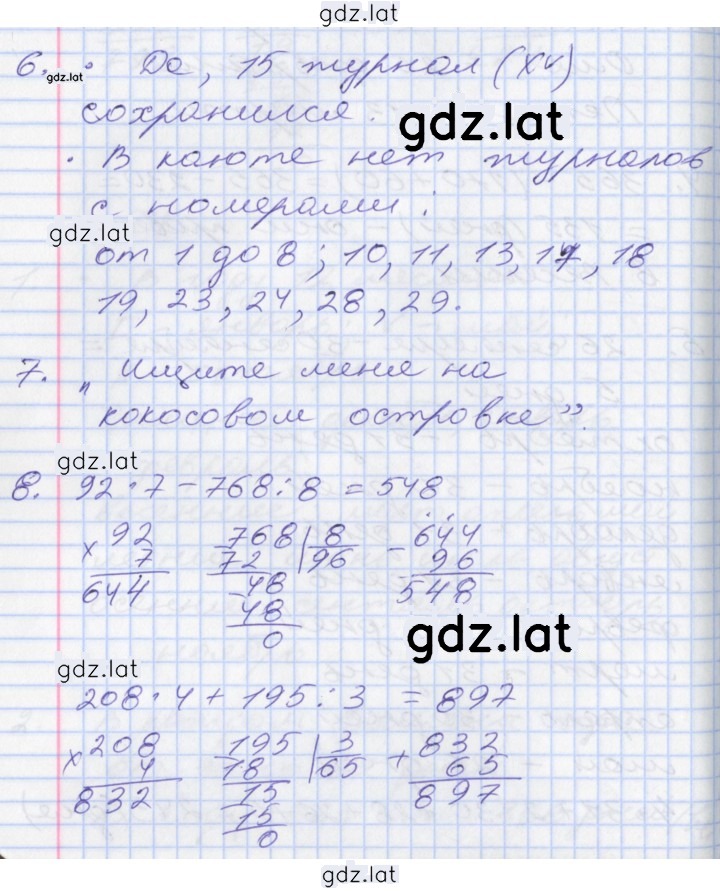 gdz.lat
6. • Да, 15 журнал (XV)
gdz.lat
сохранился.
gdz.lat
• В каюте нет журналов
с номерами:
gdz.lat
от 1 до 8; 10, 11, 13, 17, 18
19, 23, 24, 28, 29.
7. „Ищите меня на
кокосовом островке”.
gdz.lat
8. 92 · 7 − 768 : 8 = 548
× 92 − 768 | 8 − 644
7 72 96 96
644 − 48 548
48
0
gdz.lat
gdz.lat
208 · 4 + 195 : 3 = 897
× 208 − 195 | 3 + 832
4 18 65 65
832 − 15 897
15
0
gdz.lat